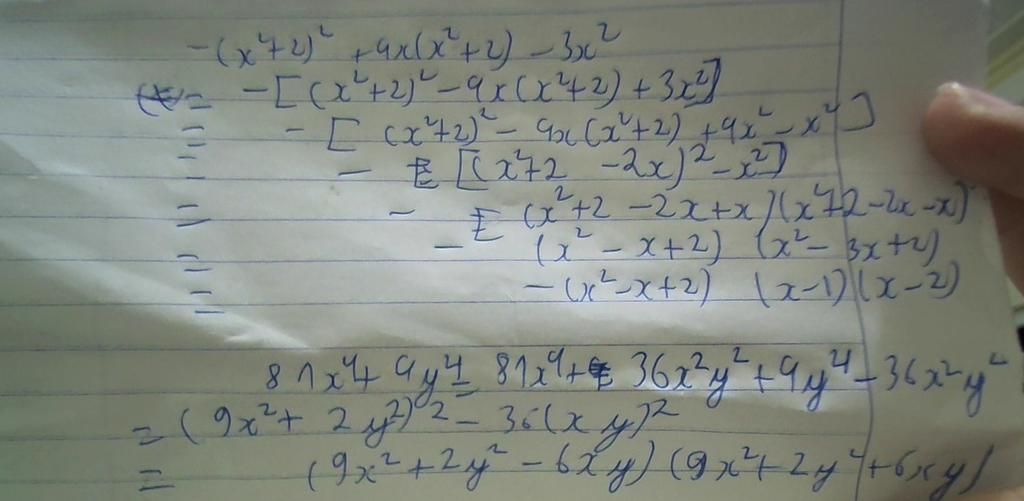 -(x²+2)² + 4x(x²+2) - 3x²
= -[(x²+2)² - 4x(x²+2) + 3x²]
= - [ (x²+2)² - 4x(x²+2) + 4x² - x² ]
= - [(x²+2 - 2x)² - x²]
= - [ (x²+2 - 2x+x)(x²+2-2x-x)
= - (x² - x+2) (x² - 3x+2)
= -(x²-x+2) (x-1)(x-2)
81x⁴+ 4y⁴ = 81x⁴+ 36x²y² + 4y⁴ - 36x²y²
= (9x² + 2y²)² - 36(xy)²
= (9x² + 2y² - 6xy) (9x² + 2y² + 6xy)